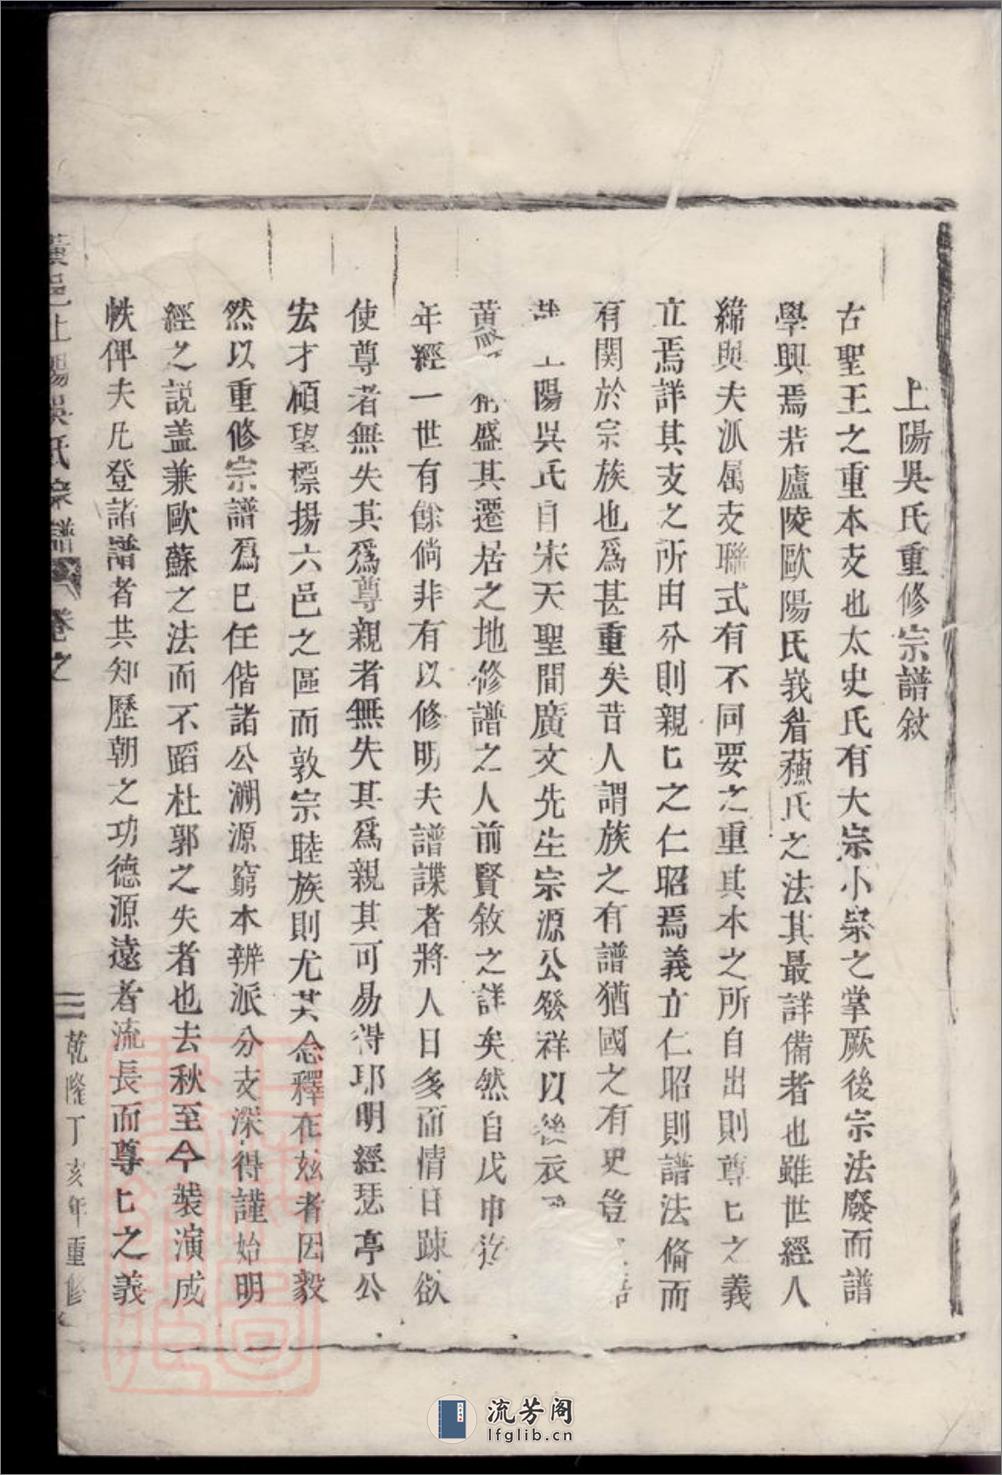 上陽吳氏重修宗譜敘
古聖王之重本支也太史氏有大宗小宗之掌厥後宗法廢而譜
學興焉若廬陵歐陽氏峩眉蘓氏之法其最詳備者也雖世經人
緯與夫派属支聯式有不同要之重其本之所自出則尊匕之義
立焉詳其支之所由分則親匕之仁昭焉義立仁昭則譜法脩而
有関於宗族也爲甚重矣昔人謂族之有譜猶國之有史豈語
哉上陽吳氏自宋天聖間廣文先生宗源公發祥以後衣
黄盛其遷居之地修譜之人前賢敘之詳矣然自戊申迄
年經一世有餘倘非有以修明夫譜諜者將人日多而情日踈欲
使尊者無失其爲尊親者無失其爲親其可易得耶明經瑟亭公
宏才碩望標揚六邑之區而敦宗睦族則尤其念釋在玆者因毅
然以重修宗譜爲已任偕諸公溯源窮本辨派分支深得謹始明
經之説盖兼歐蘇之法而不蹈杜郭之失者也去秋至今裝演成
帙俾夫凡登諸譜者共知歷朝之功德源遠者流長而尊匕之義
上陽吳氏宗譜 卷之 三 乾隆丁亥年重修
流芳阁
lfglib.cn